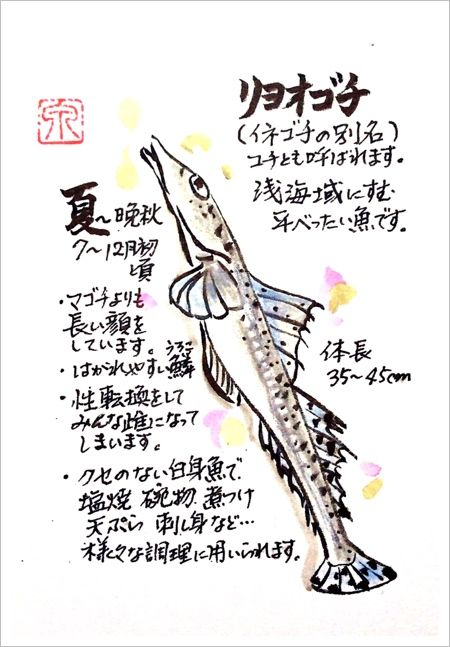 リヨオゴチ
(イネゴチの別名)
コチとも呼ばれます。
浅海域にすむ
平べったい魚です。
夏〜晩秋
7〜12月初
頃
・マゴチよりも
長い顔を
しています。
・はがれやすい鱗
うろこ
・性転換をして
みんな雌になって
しまいます。
・クセのない白身魚で
塩焼 碗物 煮つけ
天ぷら 刺し身など…
様々な調理に用いられます。
体長
35〜45cm